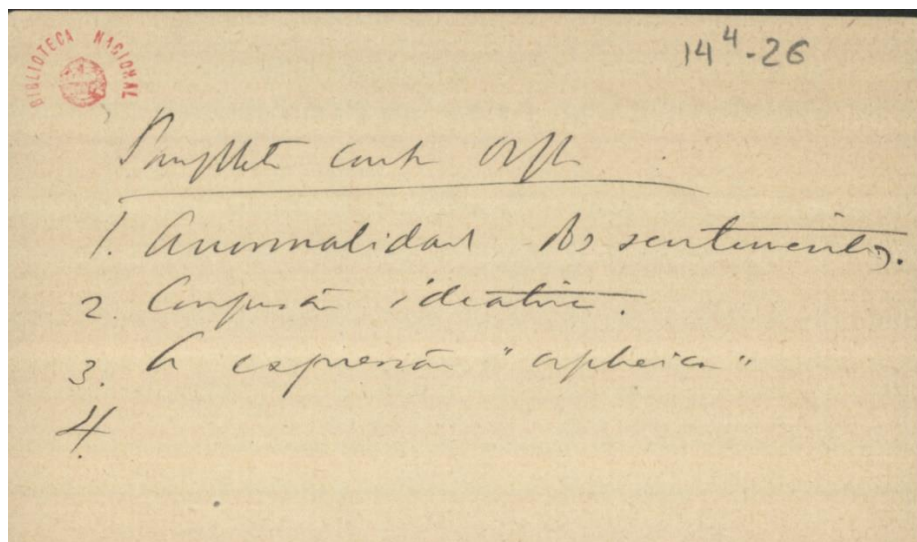 BIBLIOTECA NACIONAL
14⁴-26
Pamphleto contra Orpheu
1. Anormalidade dos sentimentos.
2. Confusão ideativa.
3. A expressão "orpheica"
4.